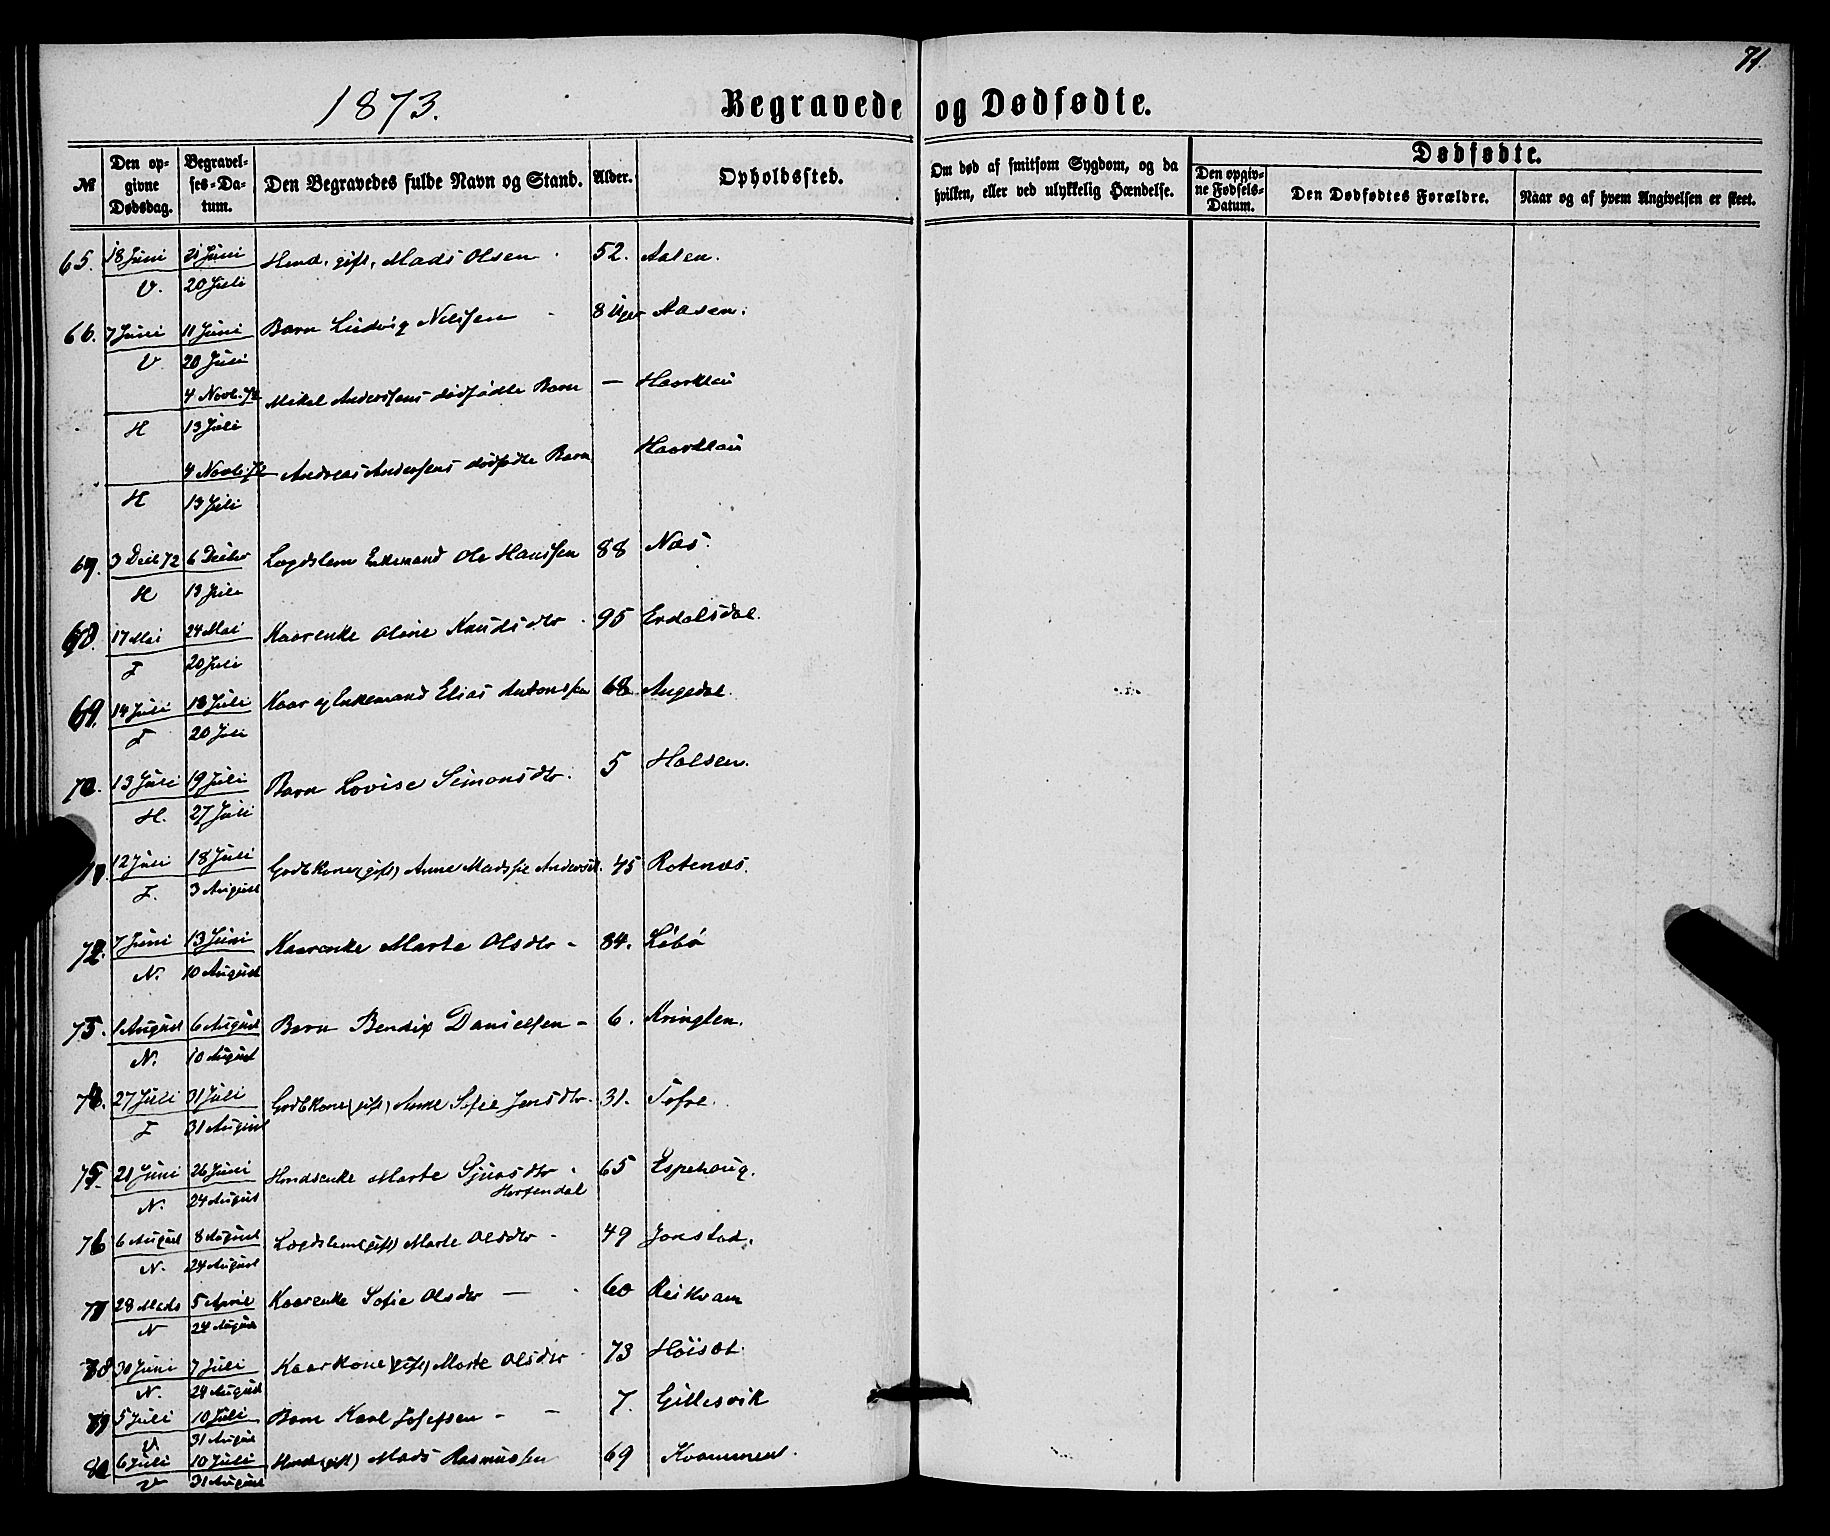 71.
1873. Begravede og Dødfødte.
№ Den opgivne Dødsdag. Begravelses-Datum. Den Begravedes fulde Navn og Stand. Alder. Opholdssted. Om død af smitsom Sygdom, og da hvilken, eller ved ulykkelig Hændelse. Dødfødte.
Den opgivne Fødsels-Datum. Den Dødfødtes Forældre. Naar og af hvem Angivelsen er skeet.
65. 18 Juni 21 Juni Mads Olsen 52.
V. 20 Juli
66. 7 Juni 11 Juni Barn Ludvig Nilssen 8 Uger Aasen.
V. 20 Juli
4 Novb. 72 Mikel Anderssens dødfødte Barn — Haarklau
H 13 Juli
4 Novb. 72 Andreas Anderssens dødfødte Barn Haarklau
H 13 Juli
67. 3 Decb 72 6 Decber Lægdslem Enkemand Ole Hanssen 88 Næs.
H 13 Juli
68. 17 Mai 24 Mai Kaarenke Oline Knudsdtr 95 Erdalsdal.
F 20 Juli
69. 14 Juli 18 Juli Kaar og Enkemand Elias Antonssen 68 Angedal.
F 20 Juli
70. 13 Juli 19 Juli Barn Lovise Simonsdtr. 5 Holsen.
H. 27 Juli
12 Juli 18 Juli (gift) Anne 45 Rotenæs.
F. 3 August
72. 7 Juni 13 Juni Kaarenke Marte Olsdtr - 84. Libø
N. 10 August
1 August 6 August Barn Bendix Danielsen - 6. Kringlen.
N. 10 August
27 Juli 31 Juli (gift) Anne Sofie Jensdtr. 31. Tefre.
F 31 August
75. 21 Juni 26 Juni Marte Sjursdtr 65 Espehoug.
N. 24 August
76 6 August 8 August Lægdslem (gift) Marte Olsdtr - 49 Jonstad.
N. 24 August
77 28 Marts 5 April Kaarenke Sofie Olsdtr — 60 Reikvam
N 24 August
78 30 Juni 7 Juli Kaarkone (gift) Marte Olsdtr 73 Høisæt.
N. 24 August
79 5 Juli 10 Juli Barn Karl Josefsen - - 7. Gillesvik
V 31 August
80 6 Juli 10 Juli (gift) Mads Rasmussen 69
V 31 August